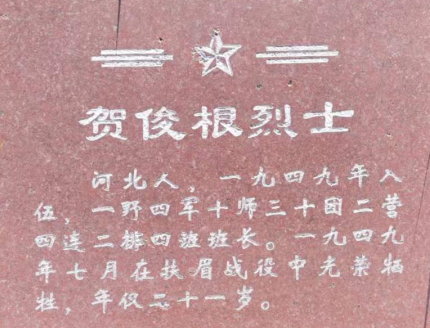 贺俊根烈士
河北人，一九四九年入
伍，一野四军十师三十团二营
四连二排四班班长。一九四九
年七月在扶眉战役中光荣牺
牲，年仅二十一岁。